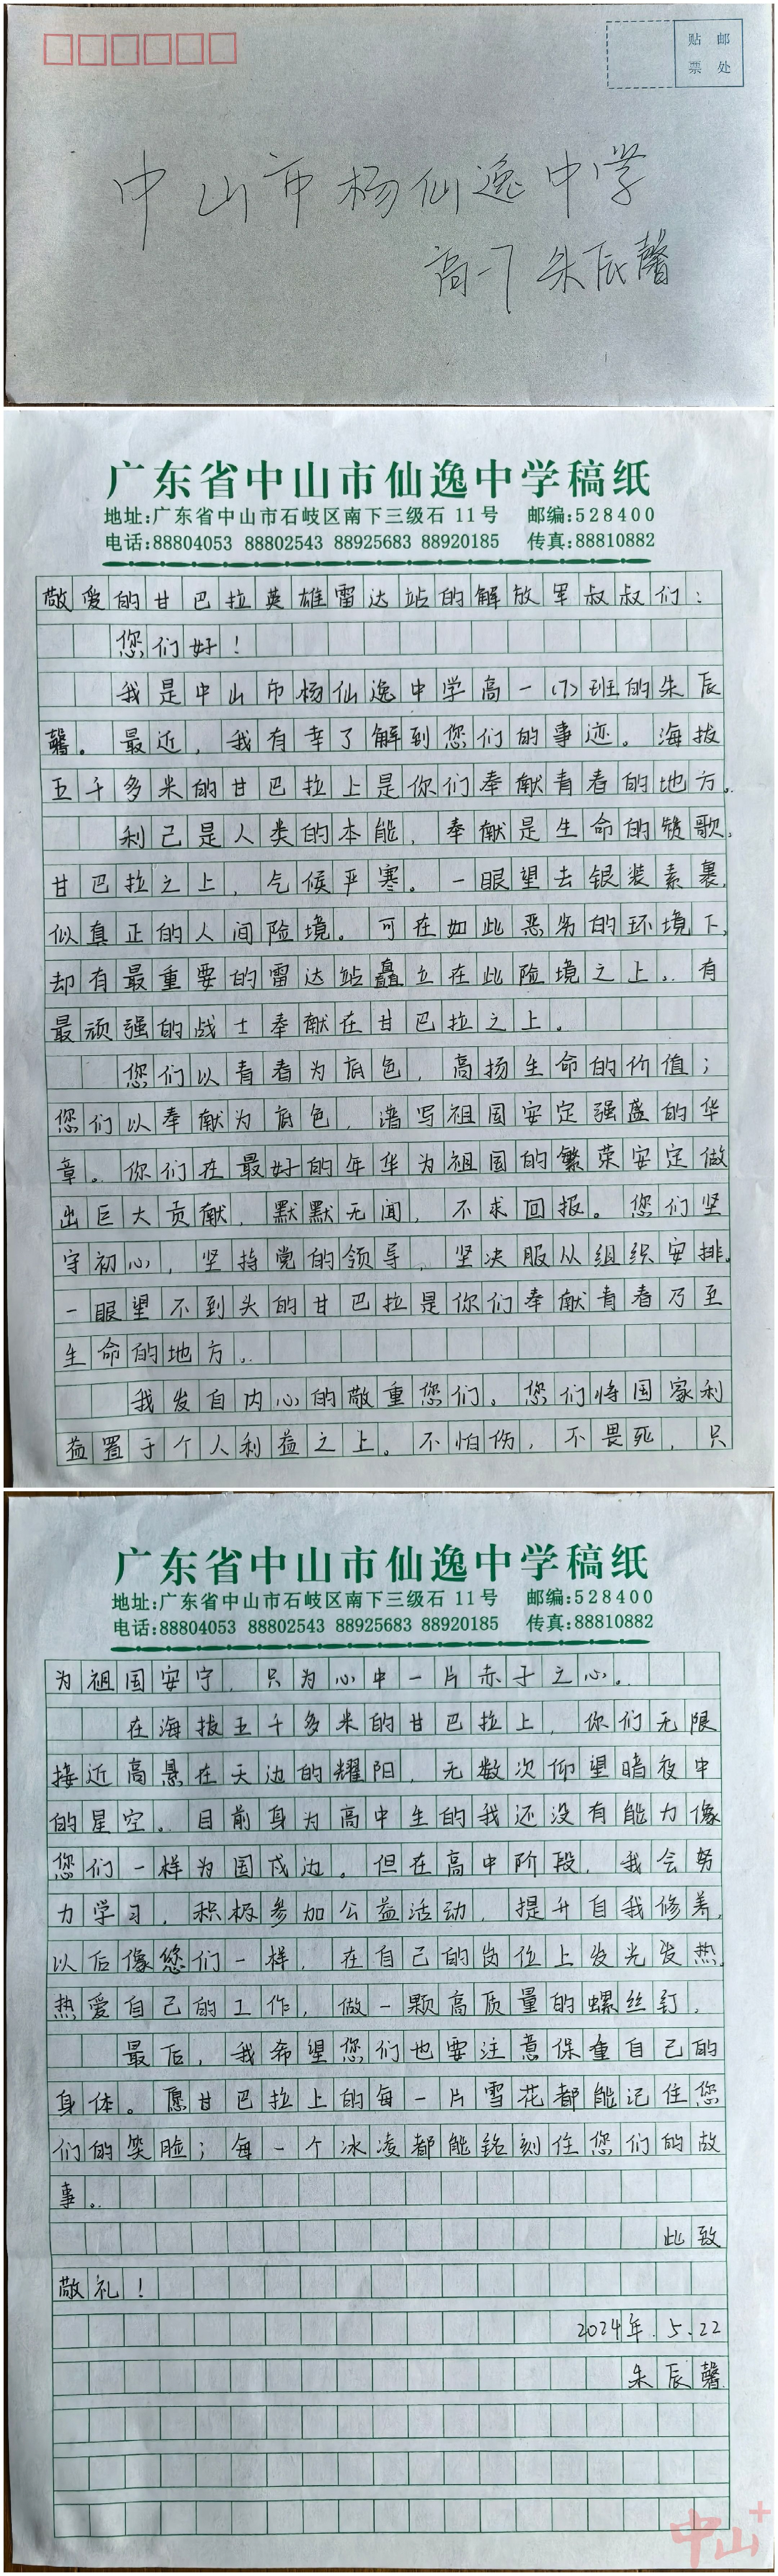 贴 邮
票 处
中山市杨仙逸中学
高一7 朱辰馨
广东省中山市仙逸中学稿纸
地址:广东省中山市石岐区南下三级石 11号 邮编:528400
电话:88804053 88802543 88925683 88920185 传真:88810882
敬爱的甘巴拉英雄雷达站的解放军叔叔们：
您们好！
我是中山市杨仙逸中学高一（7）班的朱辰
馨。最近，我有幸了解到您们的事迹。海拔
五千多米的甘巴拉上是你们奉献青春的地方。
利己是人类的本能，奉献是生命的赞歌。
甘巴拉之上，气候严寒。一眼望去银装素裹，
似真正的人间险境。可在如此恶劣的环境下，
却有最重要的雷达站矗立在此险境之上。有
最顽强的战士奉献在甘巴拉之上。
您们以青春为底色，高扬生命的价值；
您们以奉献为底色，谱写祖国安定强盛的华
章。你们在最好的年华为祖国的繁荣安定做
出巨大贡献，默默无闻，不求回报。您们坚
守初心，坚持党的领导，坚决服从组织安排。
一眼望不到头的甘巴拉是你们奉献青春乃至
生命的地方。
我发自内心的敬重您们。您们将国家利
益置于个人利益之上。不怕伤，不畏死，只
广东省中山市仙逸中学稿纸
地址:广东省中山市石岐区南下三级石 11号 邮编:528400
电话:88804053 88802543 88925683 88920185 传真:88810882
为祖国安宁，只为心中一片赤子之心。
在海拔五千多米的甘巴拉上，你们无限
接近高悬在天边的耀阳，无数次仰望暗夜中
的星空。目前身为高中生的我还没有能力像
您们一样为国戍边。但在高中阶段，我会努
力学习，积极参加公益活动，提升自我修养，
以后像您们一样，在自己的岗位上发光发热，
热爱自己的工作，做一颗高质量的螺丝钉，
最后，我希望您们也要注意保重自己的
身体。愿甘巴拉上的每一片雪花都能记住您
们的笑脸；每一个冰凌都能铭刻住您们的故
事。
此致
敬礼！
2024年.5.22
朱辰馨
中山+